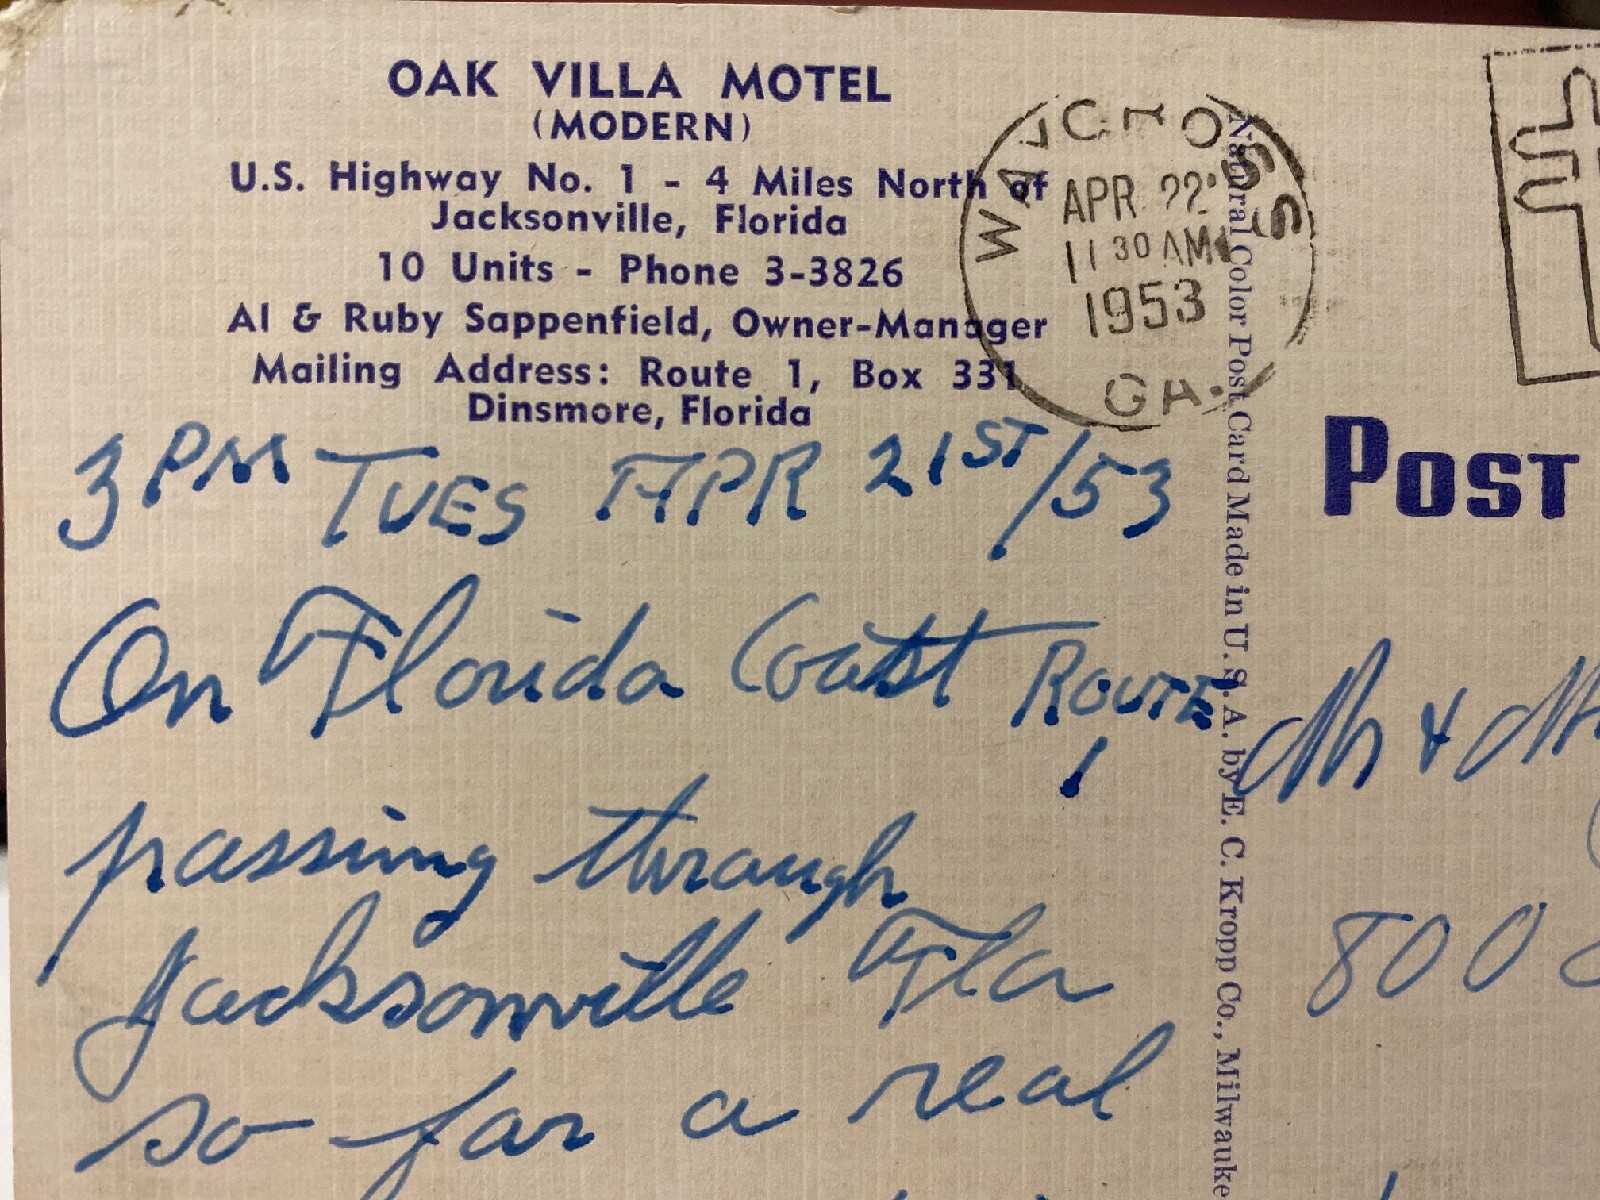 OAK VILLA MOTEL
(MODERN)
U.S. Highway No. 1 - 4 Miles North of
Jacksonville, Florida
10 Units - Phone 3-3826
Al & Ruby Sappenfield, Owner-Manager
Mailing Address: Route 1, Box 331
Dinsmore, Florida
WAYCROSS
APR 22
11 30 AM
1953
GA.
3 PM TUES APR 21ST/53
On Florida Coast ROUTE
1
passing through
Jacksonville Fla
so far a real
Natural Color Post Card Made in U. S. A. by E. C. Kropp Co., Milwaukee
POST
Mr & Mr
800